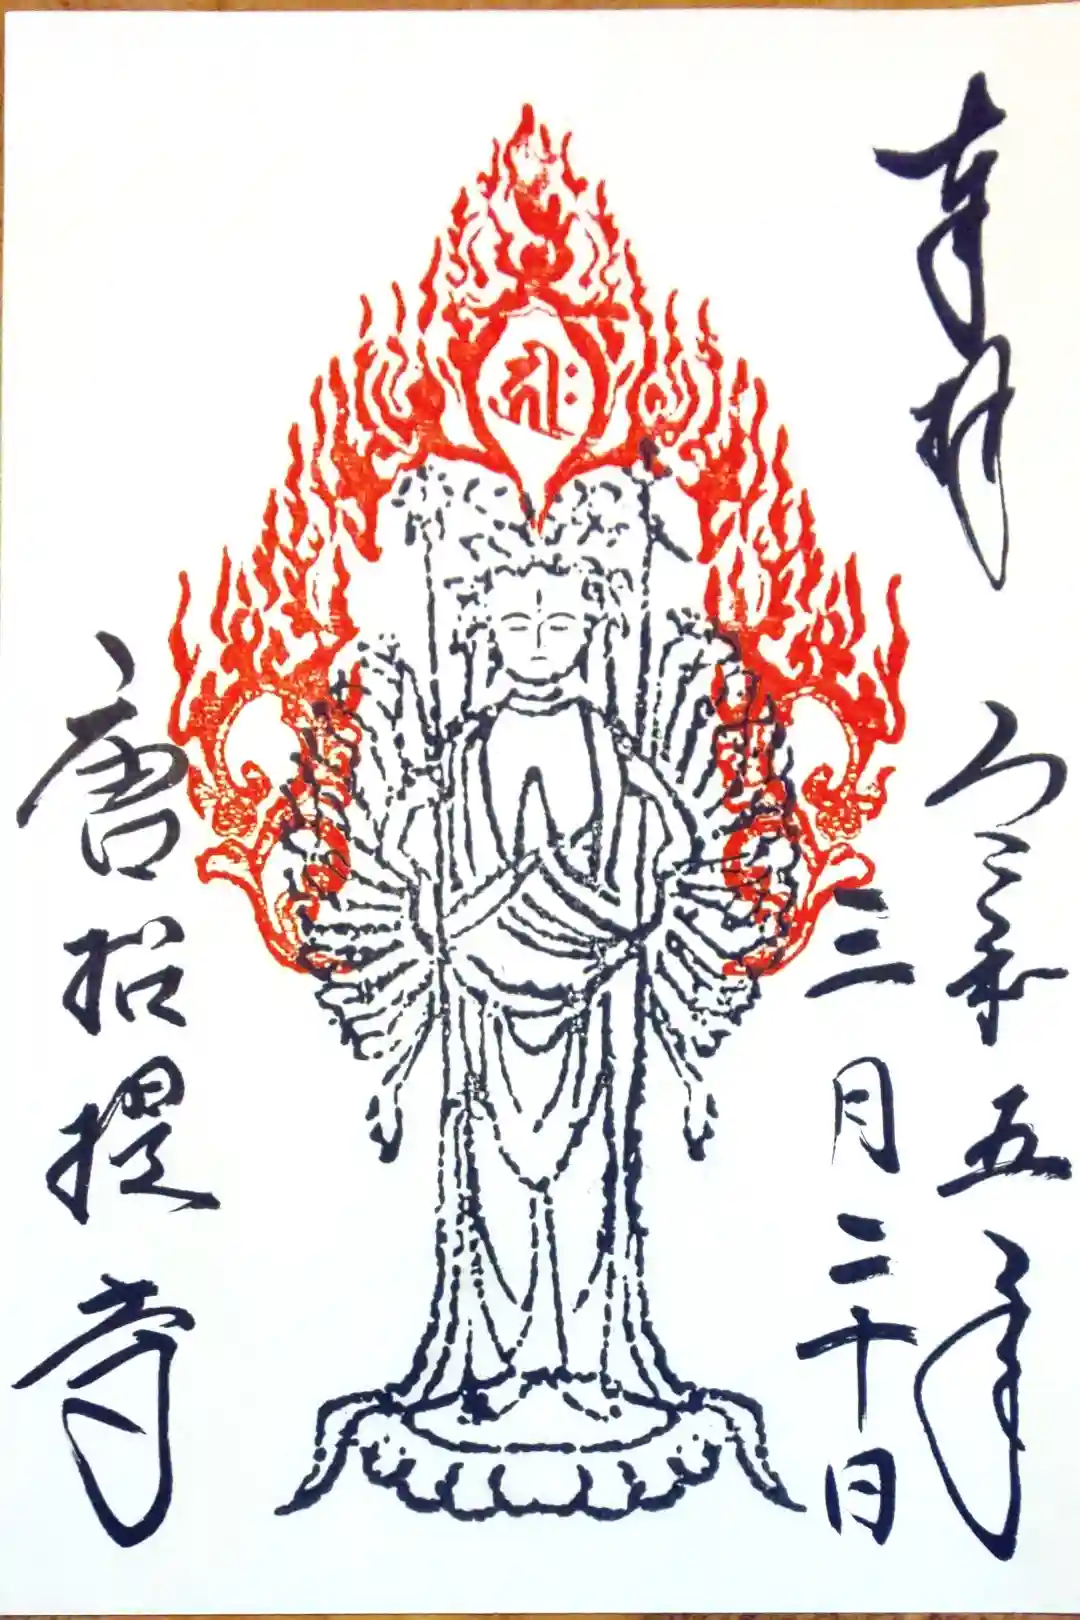 奉拝
令和五年
三月二十日
唐招提寺
𑖎𑖿𑖨𑖱𑖾